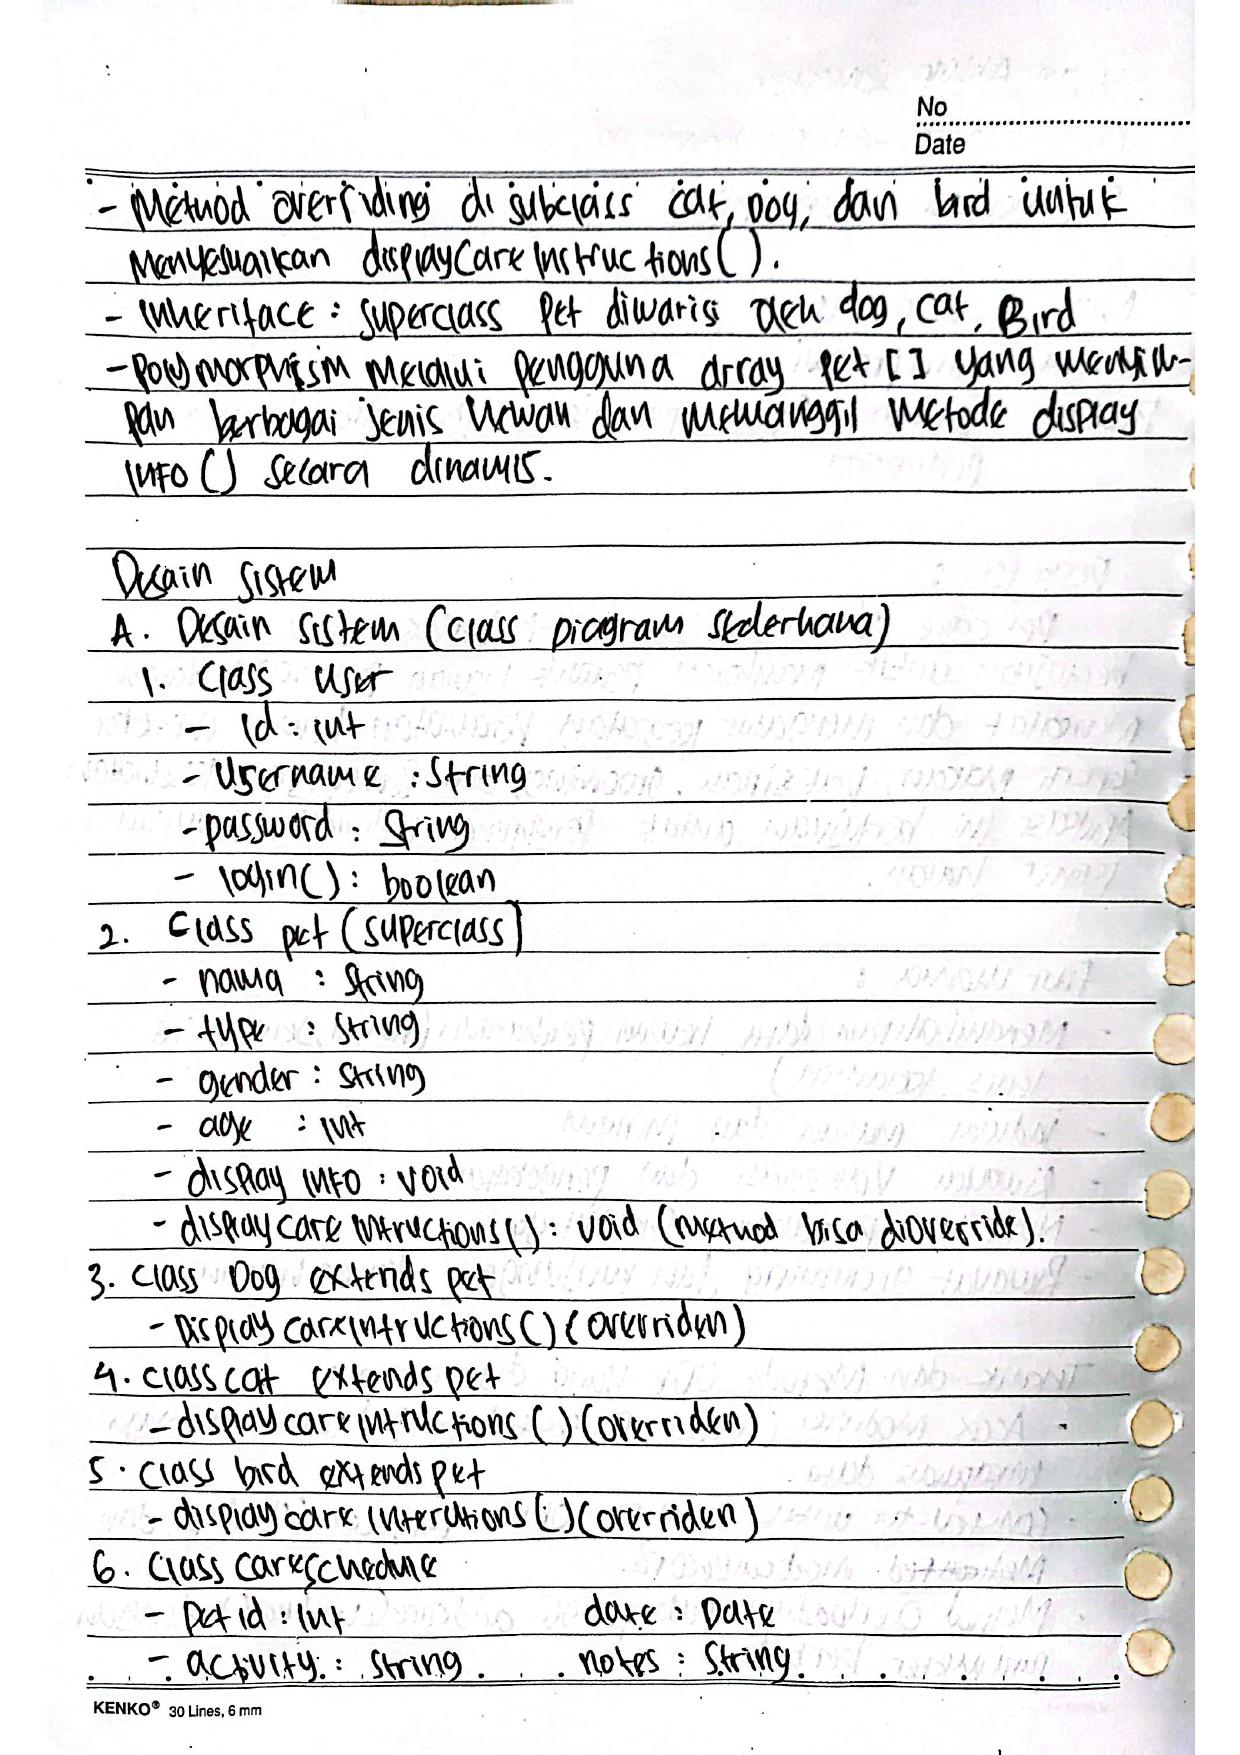 No
Date
- Method overriding di subclass cat, Dog, dan bird untuk
menyesuaikan displayCare Instructions( ).
- Inheritace : superclass Pet diwarisi oleh dog, cat, Bird
- Polymorphism melalui pengguna array Pet [ ] yang menyim-
pan berbagai jenis hewan dan memanggil metode display
INFO () secara dinamis.
Desain Sistem
A. Desain Sistem (Class Diagram sederhana)
1. Class User
- Id : int
- Username : String
- password : String
- login() : boolean
2. Class pet (superclass)
- nama : String
- type : String
- gender : String
- age : int
- display INFO : void
- display care Intructions() : void (method bisa dioverride).
3. Class Dog extends pet
- Display care Intructions() (overriden)
4. Class cat extends pet
- display care intructions () (overriden)
5. Class bird extends pet
- display care interctions () (overriden)
6. Class careschedule
- pet id : int date : Date
- activity : String notes : String
KENKO® 30 Lines, 6 mm